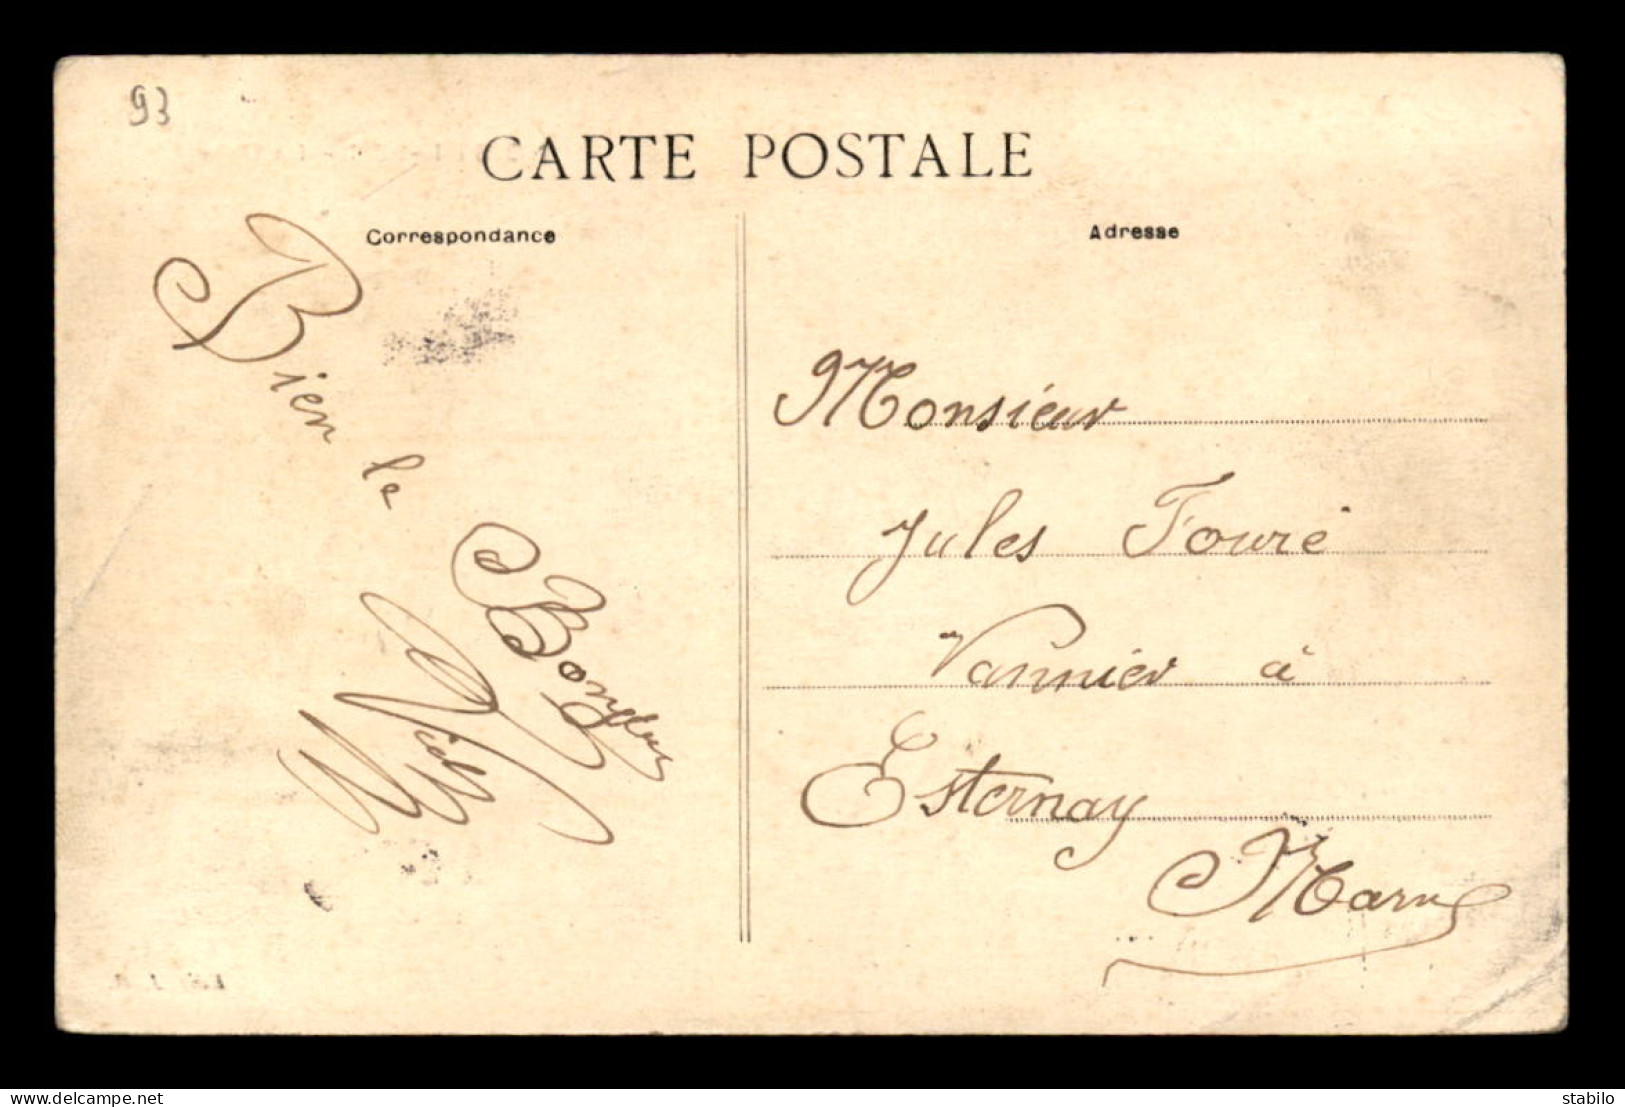 93
CARTE POSTALE
Correspondance
Adresse
Bien le Bonjour
Monsieur
Jules Fouré
Vannier à
Esternay
Marne
www.delcampe.net
stabilo